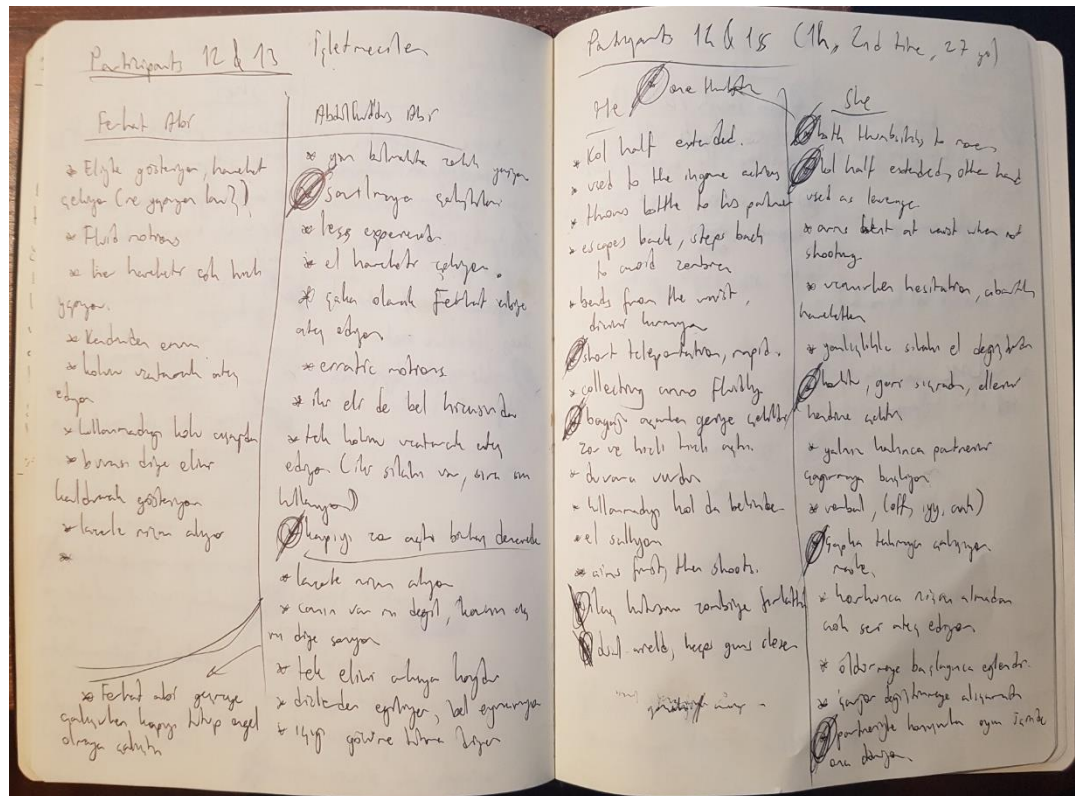 Participants 12 & 13 İşletmeciler
Ferhat Abi
* Eliyle gösteriyor, hareket
çekiyor (ne yapıyon lan?)
* Fluid motions
* her hareketi çok hızlı
yapıyor.
* Kendinden emin
* kolunu uzatarak ateş
ediyor
* kullanmadığı kolu
* burası diye elini
kaldırarak gösteriyor
* lazerle nişan alıyor
*
* Ferhat abi geçmeye
çalışırken kapıyı tutup engel
olmaya çalıştı
Abi
* gun bulmakta zorluk yaşıyor
* sarılmaya çalıştılar
* less experienced
* el hareketi çekiyor.
* şaka olarak Ferhat abiye
ateş ediyor
* erratic motions
* iki eli de bel hizasında
* tek kolunu uzatarak ateş
ediyor (iki silahı var, sıra
kullanıyor)
* kapıyı zor açtı birkaç denemede
* lazerle nişan alıyor
* canın var mı değil,
mı diye soruyor
* tek elini arkaya koydu
* dizlerden eğiliyor, bel eğmiyor
* ışığı gözüme tutma diyor
Participants 14 & 15 (1h, 2nd time, 27 yo)
He
one
* Kol half extended.
* used to the ingame actions
* throws bottle to his partner
* escapes back, steps back
to avoid zombies
* bends from the waist,
dizini kırmıyor
* short teleportation, rapid.
* collecting ammo fluidly
* geriye çekildi
zor ve hızlı hızlı açtı.
* duvara vurdu
* kullanmadığı kol da belinde
* el sallıyor
* aims first, then shoots.
* ilaç kutusunu zombiye fırlattı
* dual wield, keeps guns closer
She
* both thumbsticks to move
* kol half extended, other hand
used as leverage
* arms bent at waist when not
shooting
* hesitation, abartılı
hareketler
* yanlışlıkla silahı el değiştirdi
* korktu, geri sıçradı, ellerini
kendine çekti
* yalnız kalınca partnerini
çağırmaya başlıyor
* verbal, (off, ıyy,
* şapka takmaya çalışıyor
* korkunca nişan almadan
çok seri ateş ediyor
* öldürmeye başlayınca eğlendi.
* şarjör değiştirmeye alışamadı
* partneriyle konuşurken oyun içinde
ona dönüyor.